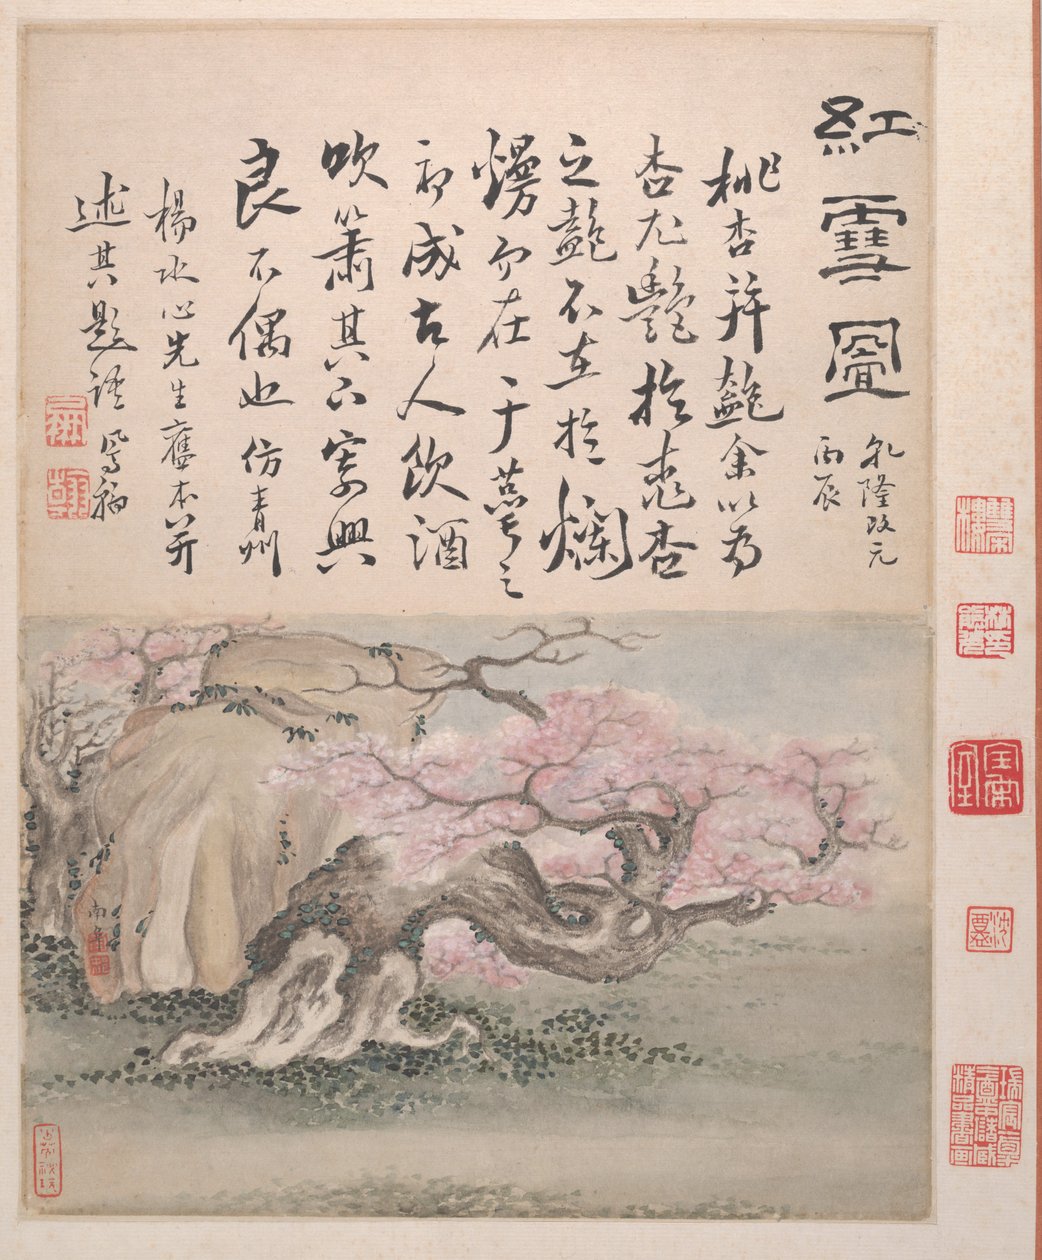 紅雪
乾隆改元
丙辰
桃杏并艷余以為
杏尤艷於桃杏
之艷不在於爛
熳而在于萼之
初成古人飲酒
吹簫其下寄興
良不偶也仿青州
楊水心先生舊本并
述其題語 鳳翰
南阜